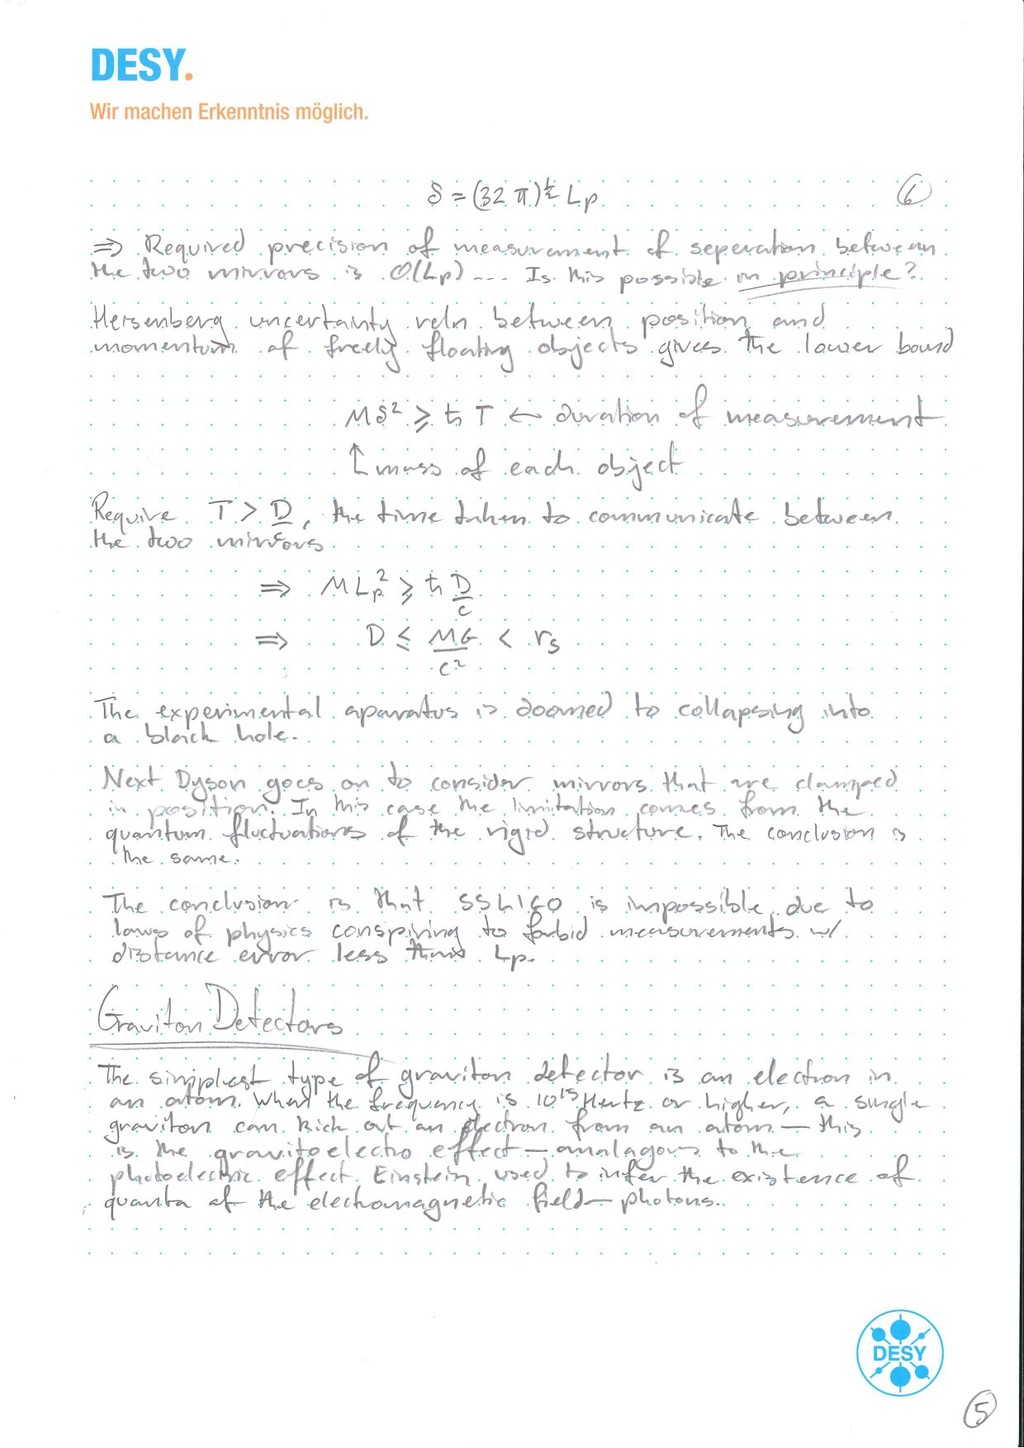 DESY.
Wir machen Erkenntnis möglich.
δ = (32 π)^½ Lp
6
⇒ Required precision of measurement of seperation between
the two mirrors is O(Lp) --- Is this possible in principle?
Heisenberg uncertainty reln between position and
momentum of freely floating objects gives the lower bound
Mδ² ≥ ħ T ← duration of measurement
↑ mass of each object
Require T > D/c, the time taken to communicate between
the two mirrors
⇒ M Lp² ≥ ħ D/c
⇒ D ≤ MG/c² < rs
The experimental aparatus is doomed to collapsing into
a black hole.
Next Dyson goes on to consider mirrors that are clamped
in position. In this case the limitation comes from the
quantum fluctuations of the rigid structure. The conclusion is
the same.
The conclusion is that SSLIGO is impossible due to
laws of physics conspiring to forbid measurements w/
distance error less than Lp.
Graviton Detectors
The simplest type of graviton detector is an electron in
an atom. When the frequency is 10¹⁵ Hertz or higher, a single
graviton can kick out an electron from an atom — this
is the gravitoelectric effect — analagous to the
photoelectric effect Einstein used to infer the existence of
quanta of the electromagnetic field — photons.
DESY
5